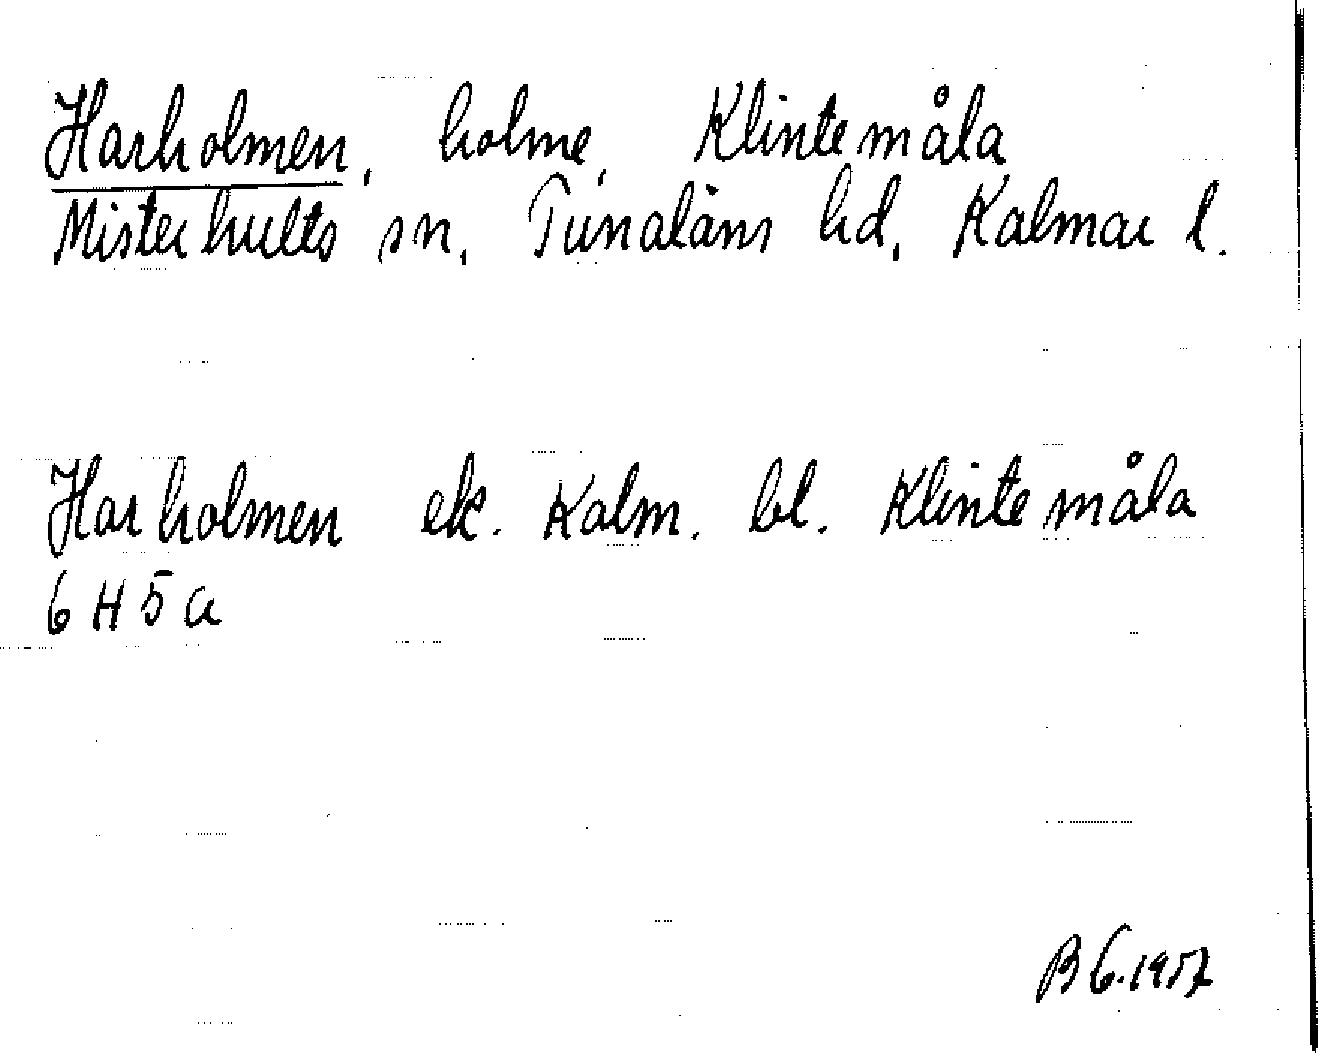 Harholmen, holme, Klintemåla,
Misterhults sn, Tunaläns hd, Kalmar l.
Harholmen ek. Kalm. bl. Klintemåla
6 H 5 a
B G. 1957